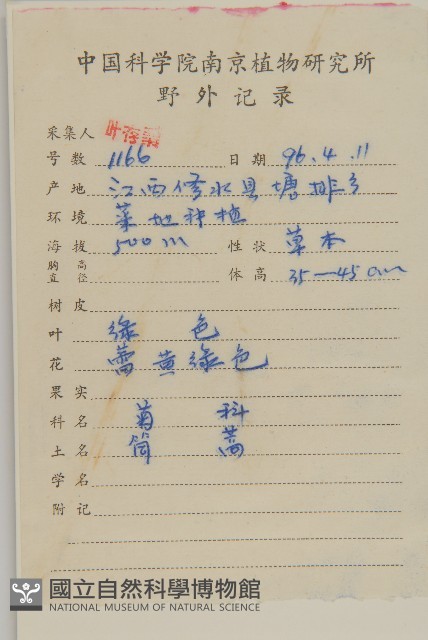 中国科学院南京植物研究所
野外记录
采集人 叶存粟
号数 1166 日期 96.4.11
产地 江西修水县塘排乡
环境 菜地种植
海拔 500m 性状 草本
胸高直径 体高 35—45cm
树皮
叶 綠色
花 蕾黄綠色
果实
科名 菊科
土名 筒蒿
学名
附记
國立自然科學博物館
NATIONAL MUSEUM OF NATURAL SCIENCE